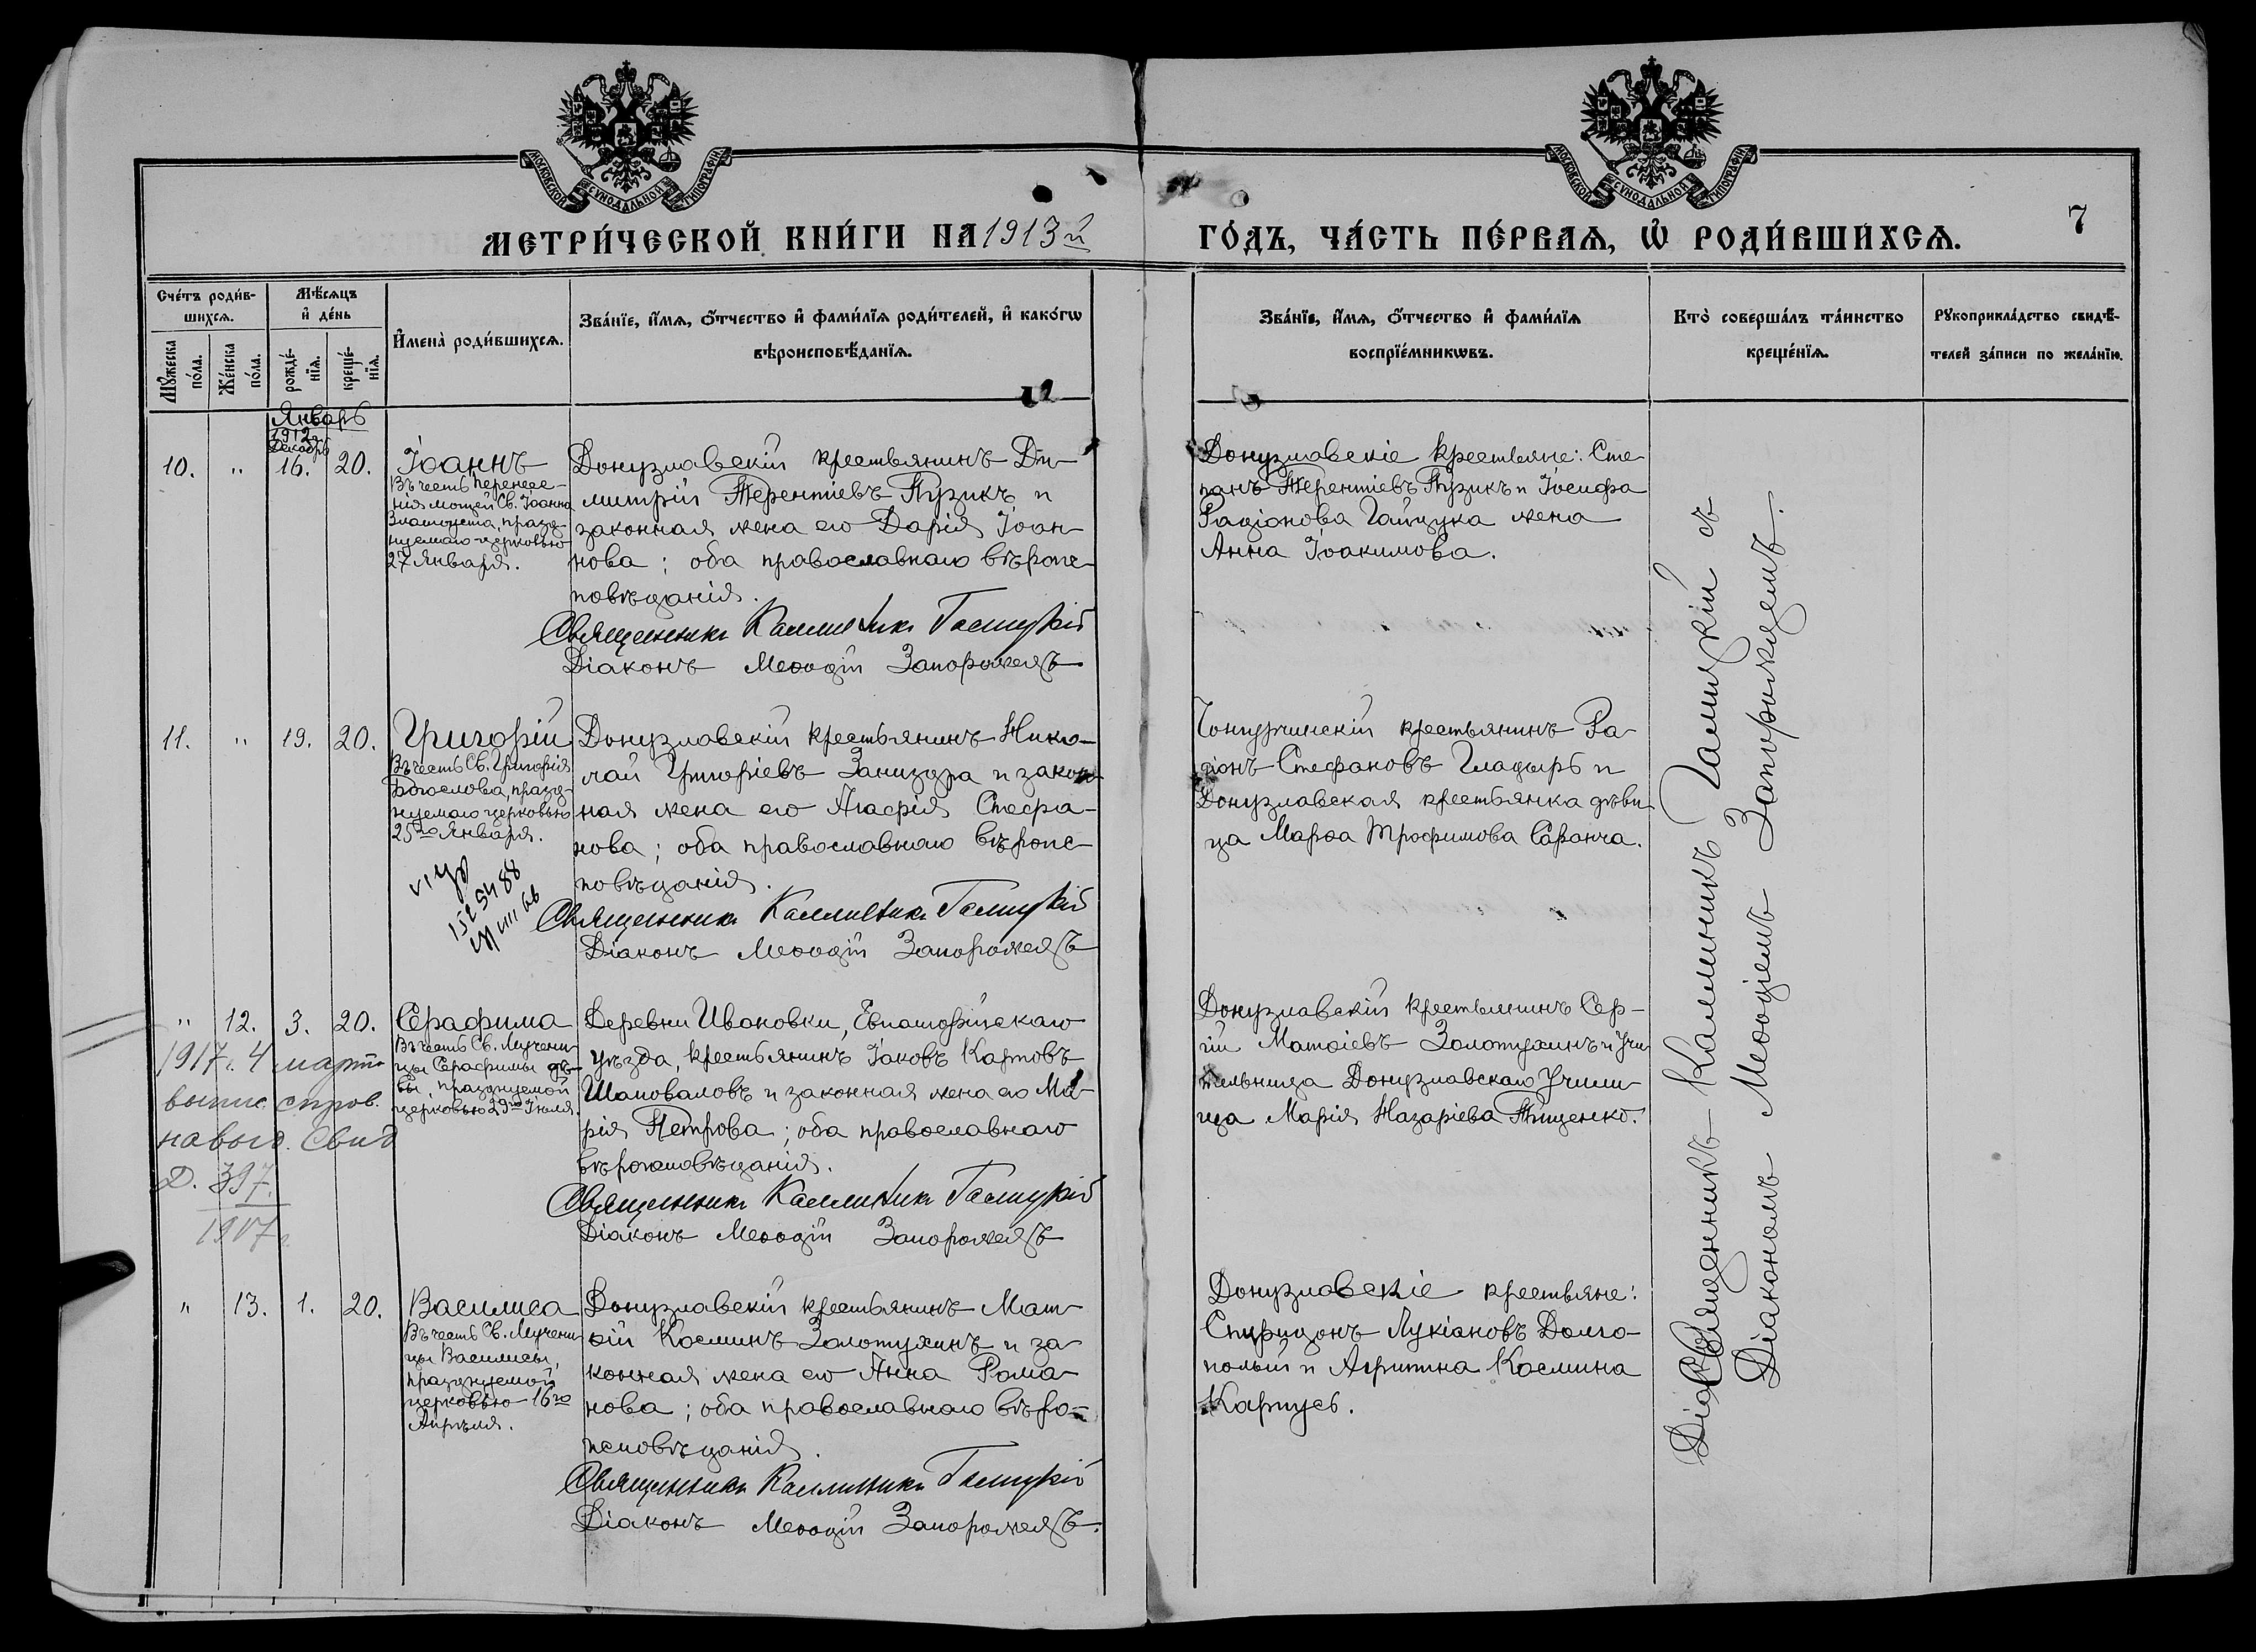 МОСКОВСКОЙ СѴНОДАЛЬНОЙ ТИПОГРАФІИ
МОСКОВСКОЙ СѴНОДАЛЬНОЙ ТИПОГРАФІИ
МЕТРИ́ЧЕСКОЙ КНИ́ГИ НА 1913й
ГО́ДЪ, ЧА́СТЬ ПЕ́РВАѦ, Ѡ РОДИ́ВШИХСѦ.
7
Сче́тъ роди́в-
шихсѧ.
Мѣ́сѧцъ
и де́нь
Мꙋ́жеска
по́ла.
Же́нска
по́ла.
рожде́-
нїѧ.
креще́-
нїѧ.
И҆мена̀ роди́вшихсѧ.
Зва́нїе, и҆́мѧ, ѻ҆́тчество и҆ фами́лїѧ роди́телей, и҆ како́гѡ
вѣроисповѣ́данїѧ.
Зва́нїе, и҆́мѧ, ѻ҆́тчество и҆ фами́лїѧ
воспрїе́мникѡвъ.
Кто̀ соверша́лъ та́инство
креще́нїѧ.
Рꙋкоприкла́дство свидѣ́-
телей за́писи по жела́нїю.
Январь
1912
Декабрь
10. " 16. 20.
Іоаннъ
Въ честь перенесе-
нія мощей Св. Іоанна
Златоуста, празд-
нуемаго церковью
27 Января.
Донузлавскій крестьянинъ Ди-
митрій Терентіевъ Пузикъ и
законная жена его Дарія Іоан-
нова; оба православнаго вѣроис-
повѣданія.
Священникъ Каллиникъ Галицкій
Діаконъ Меѳодій Запорожецъ
Донузлавскіе крестьяне: Сте-
панъ Терентіевъ Пузикъ и Іосифа
Радіонова Гайдука жена
Анна Іоакимова.
11. " 19. 20.
Григорій
Въ честь Св. Григорія
Богослова, празд-
нуемаго церковью
25го Января.
152 5488
Донузлавскій крестьянинъ Нико-
лай Григоріевъ Заниздра и закон-
ная жена его Агафія Стефа-
нова; оба православнаго вѣроис-
повѣданія.
Священникъ Каллиникъ Галицкій
Діаконъ Меѳодій Запорожецъ
крестьянинъ Ра-
діонъ Стефановъ Гладырь и
Донузлавская крестьянка дѣви-
ца Марѳа Трофимова Саранча.
" 12. 3. 20.
Серафима
Въ честь Св. Мучени-
цы Серафимы дѣ-
вы, празднуемой
церковью 29го Іюля.
1917 г. 4 марта
выпис. справ.
на выд. Свид
Д. 397.
1917 г.
Деревни Ивановки, Евпаторійскаго
уѣзда, крестьянинъ Іаковъ Карповъ
Шаповаловъ и законная жена его Ма-
рія Петрова; оба православнаго
вѣроисповѣданія.
Священникъ Каллиникъ Галицкій
Діаконъ Меѳодій Запорожецъ
Донузлавскій крестьянинъ Сер-
гій Матѳіевъ Золотухинъ и Учи-
тельница Донузлавскаго Учили-
ща Марія Назаріева Тищенко.
" 13. 1. 20.
Василиса
Въ честь Св. Мучени-
цы Василисы,
празднуемой
церковью 16го
Апрѣля.
Донузлавскій крестьянинъ Мат-
ѳій Косминъ Золотухинъ и за-
конная жена его Анна Рома-
нова; оба православнаго вѣро-
исповѣданія.
Священникъ Каллиникъ Галицкій
Діаконъ Меѳодій Запорожецъ.
Донузлавскіе крестьяне:
Спиридонъ Лукіановъ Долго-
полый и Агриппина Космина
Карпусь.
Священникъ Каллиникъ Галицкій съ
Діакономъ Меѳодіемъ Запорожцемъ.